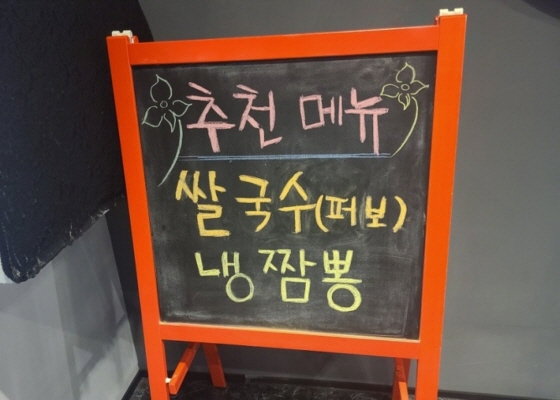 추천 메뉴
쌀국수(퍼보)
냉짬뽕